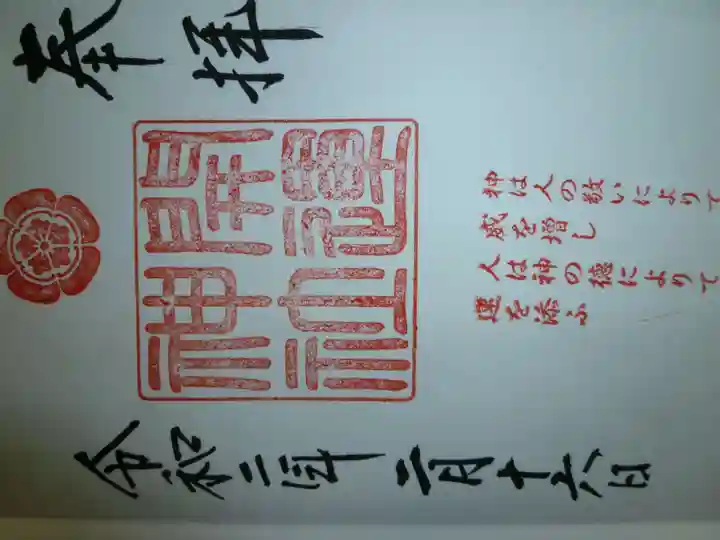 奉拝
神は人の敬いによりて
威を増し
人は神の徳によりて
運を添ふ
神社
令和二年二月十六日